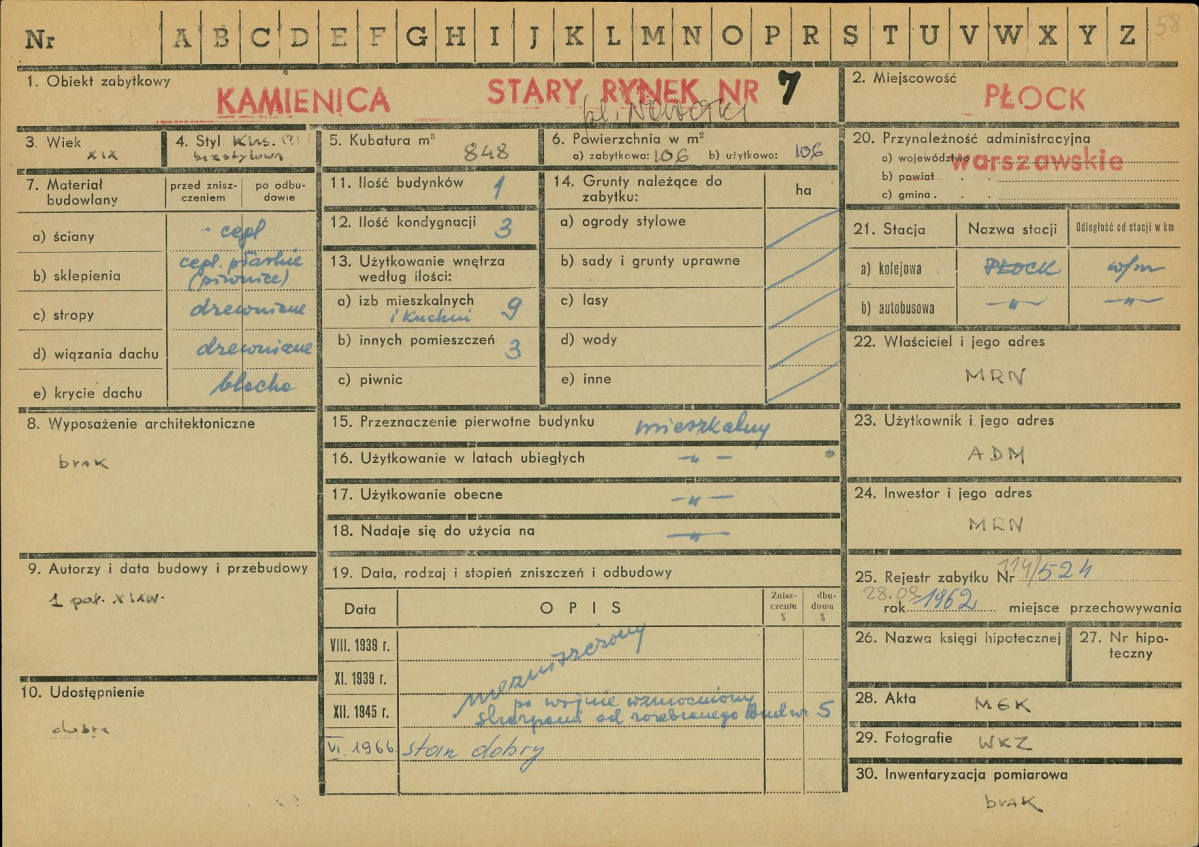 Nr A B C D E F G H I J K L M N O P R S T U V W X Y Z 58
1. Obiekt zabytkowy
KAMIENICA STARY RYNEK NR 7
pl. Nowotki
2. Miejscowość
PŁOCK
3. Wiek
XIX
4. Styl Klas. (?)
bezstylowa
5. Kubatura m³
848
6. Powierzchnia w m²
a) zabytkowa: 106 b) użytkowa: 106
20. Przynależność administracyjna
a) województwo warszawskie
b) powiat
c) gmina
7. Materiał budowlany
przed znisz-
czeniem
po odbu-
dowie
a) ściany cegł
b) sklepienia cegl. płaskie
(piwnice)
c) stropy drewniane
d) wiązania dachu drewniane
e) krycie dachu blacha
11. Ilość budynków 1
12. Ilość kondygnacji 3
13. Użytkowanie wnętrza
według ilości:
a) izb mieszkalnych 9
i kuchni
b) innych pomieszczeń 3
c) piwnic
14. Grunty należące do
zabytku:
ha
a) ogrody stylowe
b) sady i grunty uprawne
c) lasy
d) wody
e) inne
21. Stacja Nazwa stacji Odległość od stacji w km
a) kolejowa PŁOCK w/m
b) autobusowa —"— —"—
22. Właściciel i jego adres
MRN
8. Wyposażenie architektoniczne
brak
15. Przeznaczenie pierwotne budynku mieszkalny
16. Użytkowanie w latach ubiegłych —"—
17. Użytkowanie obecne —"—
18. Nadaje się do użycia na —"—
23. Użytkownik i jego adres
ADM
24. Inwestor i jego adres
MRN
9. Autorzy i data budowy i przebudowy
1 poł. XIXw.
10. Udostępnienie
dobre
19. Data, rodzaj i stopień zniszczeń i odbudowy
Data OPIS
Znisz-
czenia
%
dbu-
dowa
%
VIII. 1939 r.
XI. 1939 r.
niezniszczony
XII. 1945 r.
po wojnie wzmocniony
skarpami od rozebranego Bud nr 5
VI. 1966 stan dobry
25. Rejestr zabytku Nr 114/524
28.03. rok 1962 miejsce przechowywania
26. Nazwa księgi hipotecznej
27. Nr hipo-
teczny
28. Akta MGK
29. Fotografie WKZ
30. Inwentaryzacja pomiarowa
brak